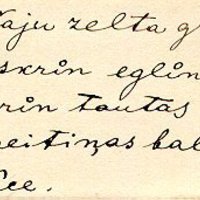 aju zelta g
skrin eglin
rin tautas
eitiņas bal
ee.